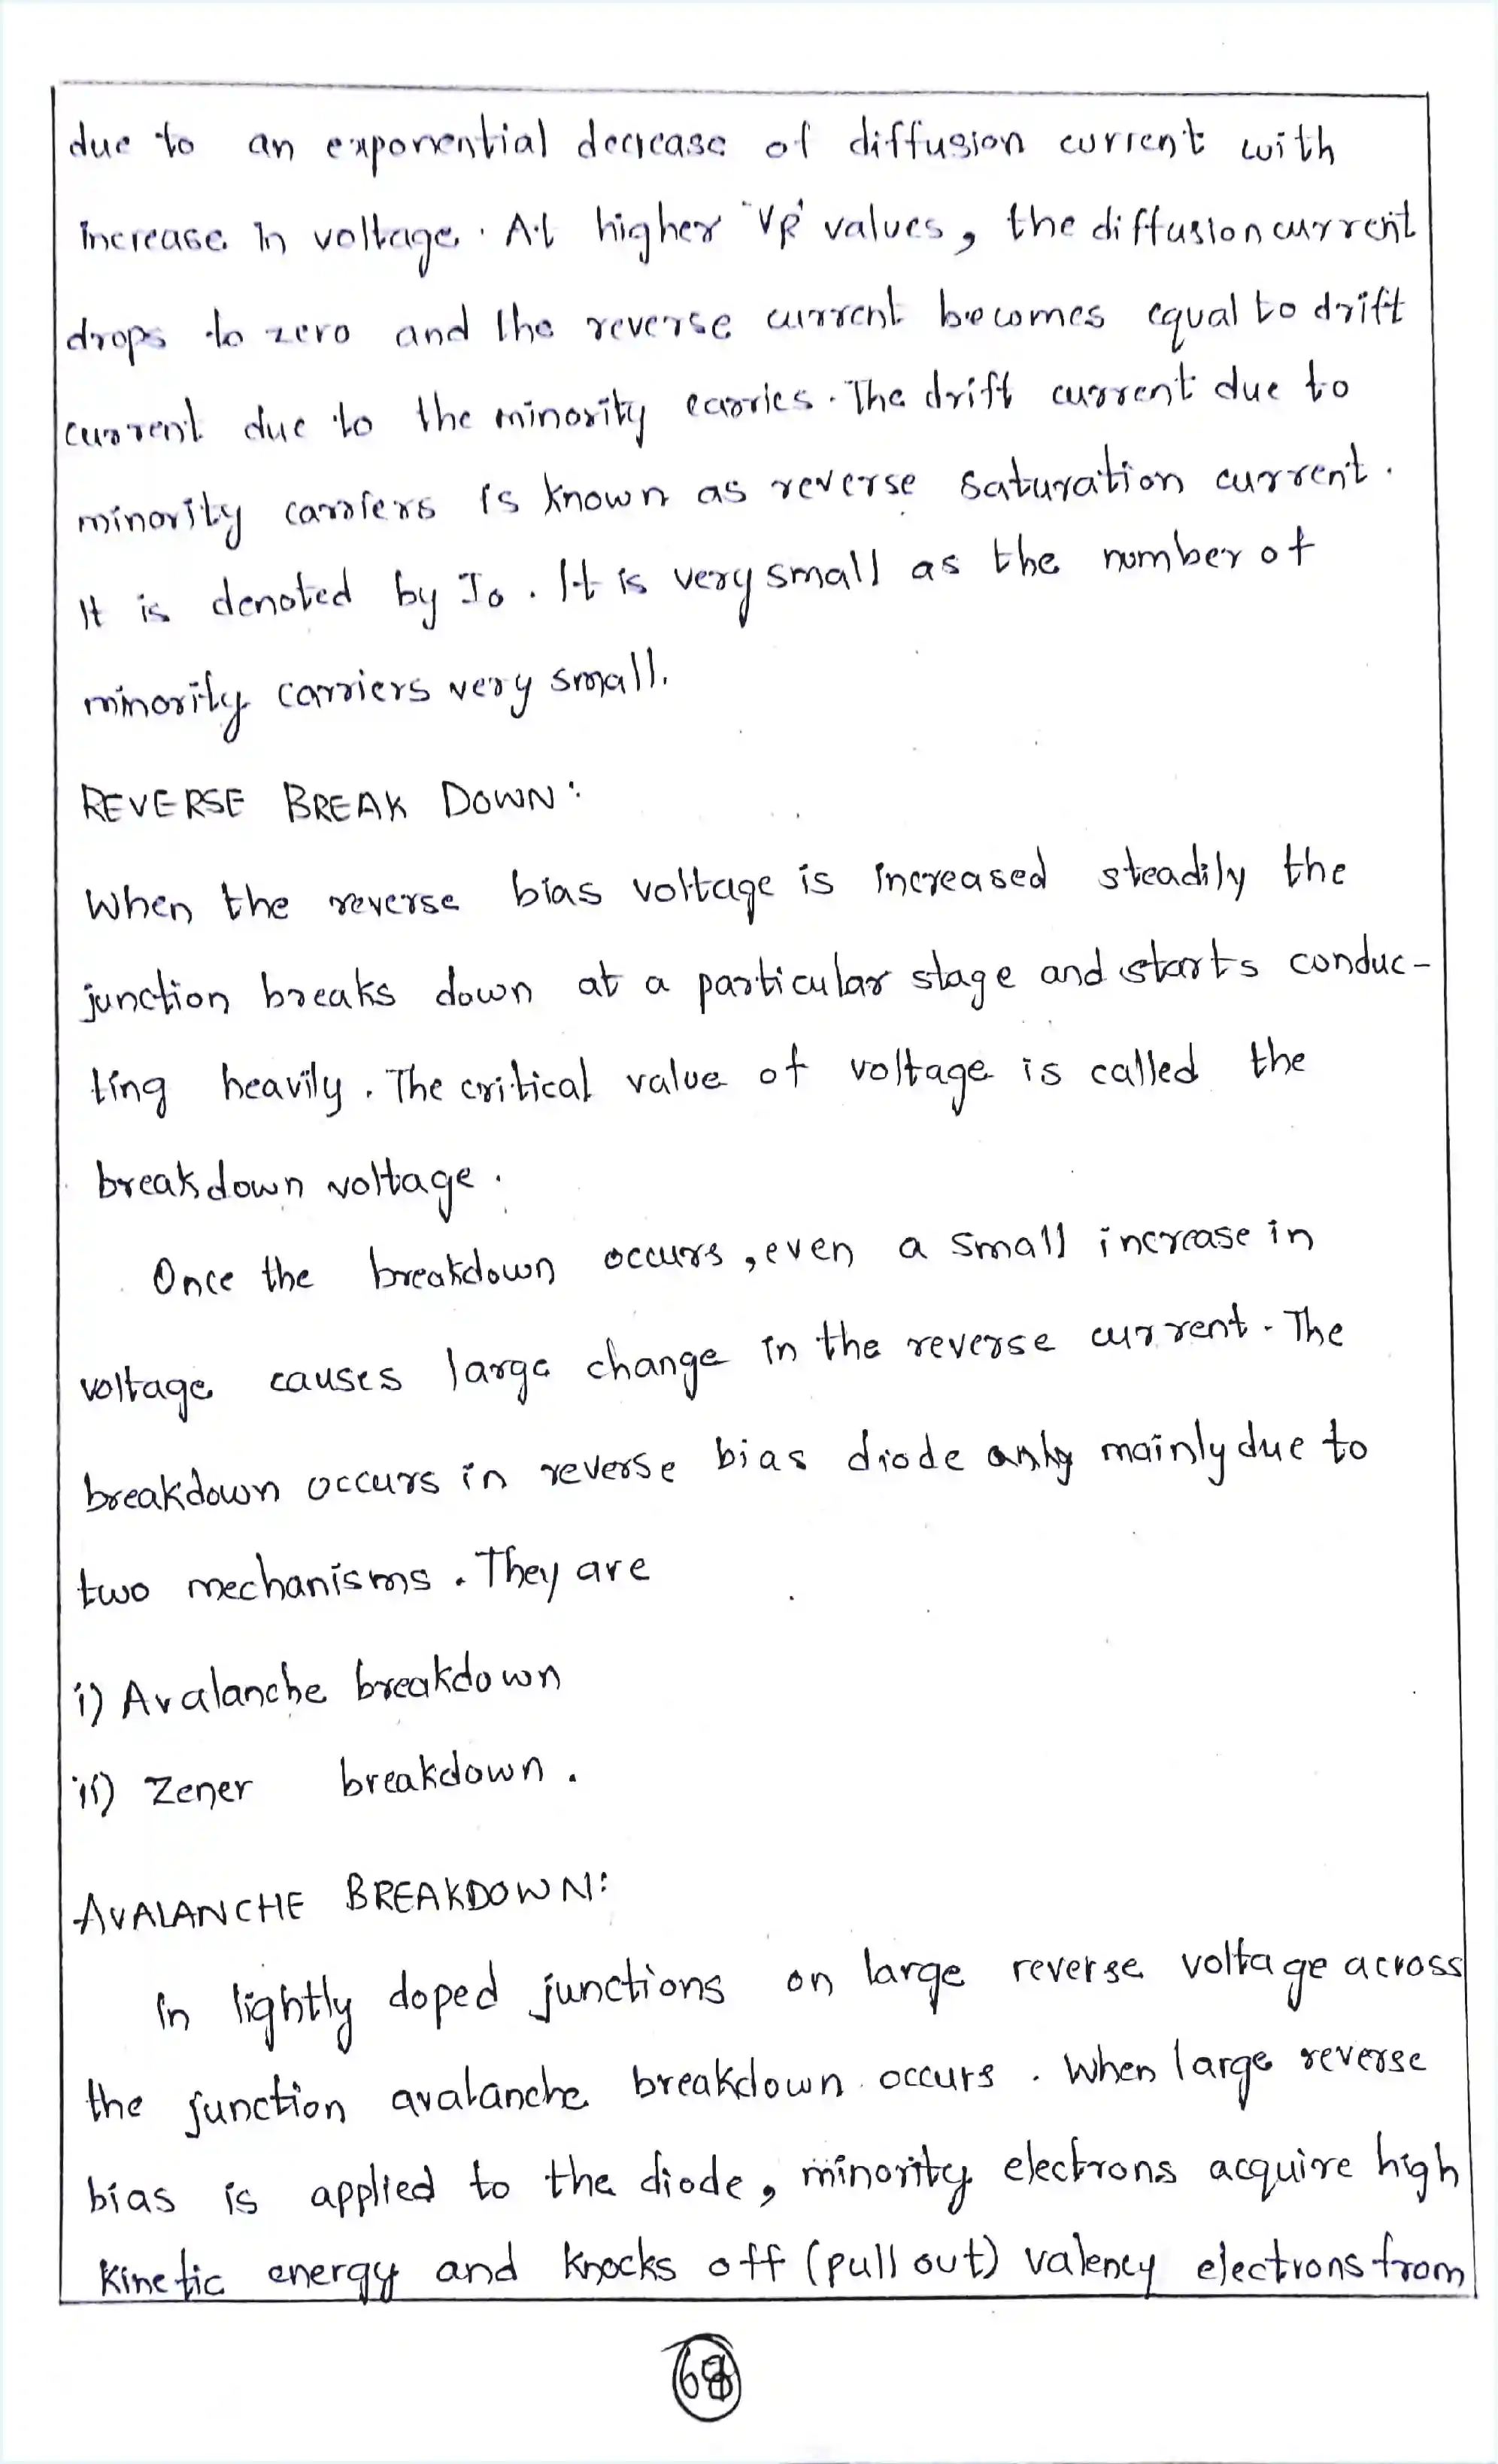 due to an exponential decrease of diffusion current with
increase in voltage. At higher "VR" values, the diffusion current
drops to zero and the reverse current becomes equal to drift
current due to the minority carries. The drift current due to
minority carriers is known as reverse saturation current.
It is denoted by Io. It is very small as the number of
minority carriers very small.
REVERSE BREAK DOWN:
When the reverse bias voltage is increased steadily the
junction breaks down at a particular stage and starts conduc-
ting heavily. The critical value of voltage is called the
breakdown voltage.
Once the breakdown occurs, even a small increase in
voltage causes large change in the reverse current. The
breakdown occurs in reverse bias diode mainly due to
two mechanisms. They are
i) Avalanche breakdown
ii) Zener breakdown.
AVALANCHE BREAKDOWN:
In lightly doped junctions on large reverse voltage across
the junction avalanche breakdown occurs. When large reverse
bias is applied to the diode, minority electrons acquire high
Kinetic energy and knocks off (pull out) valency electrons from